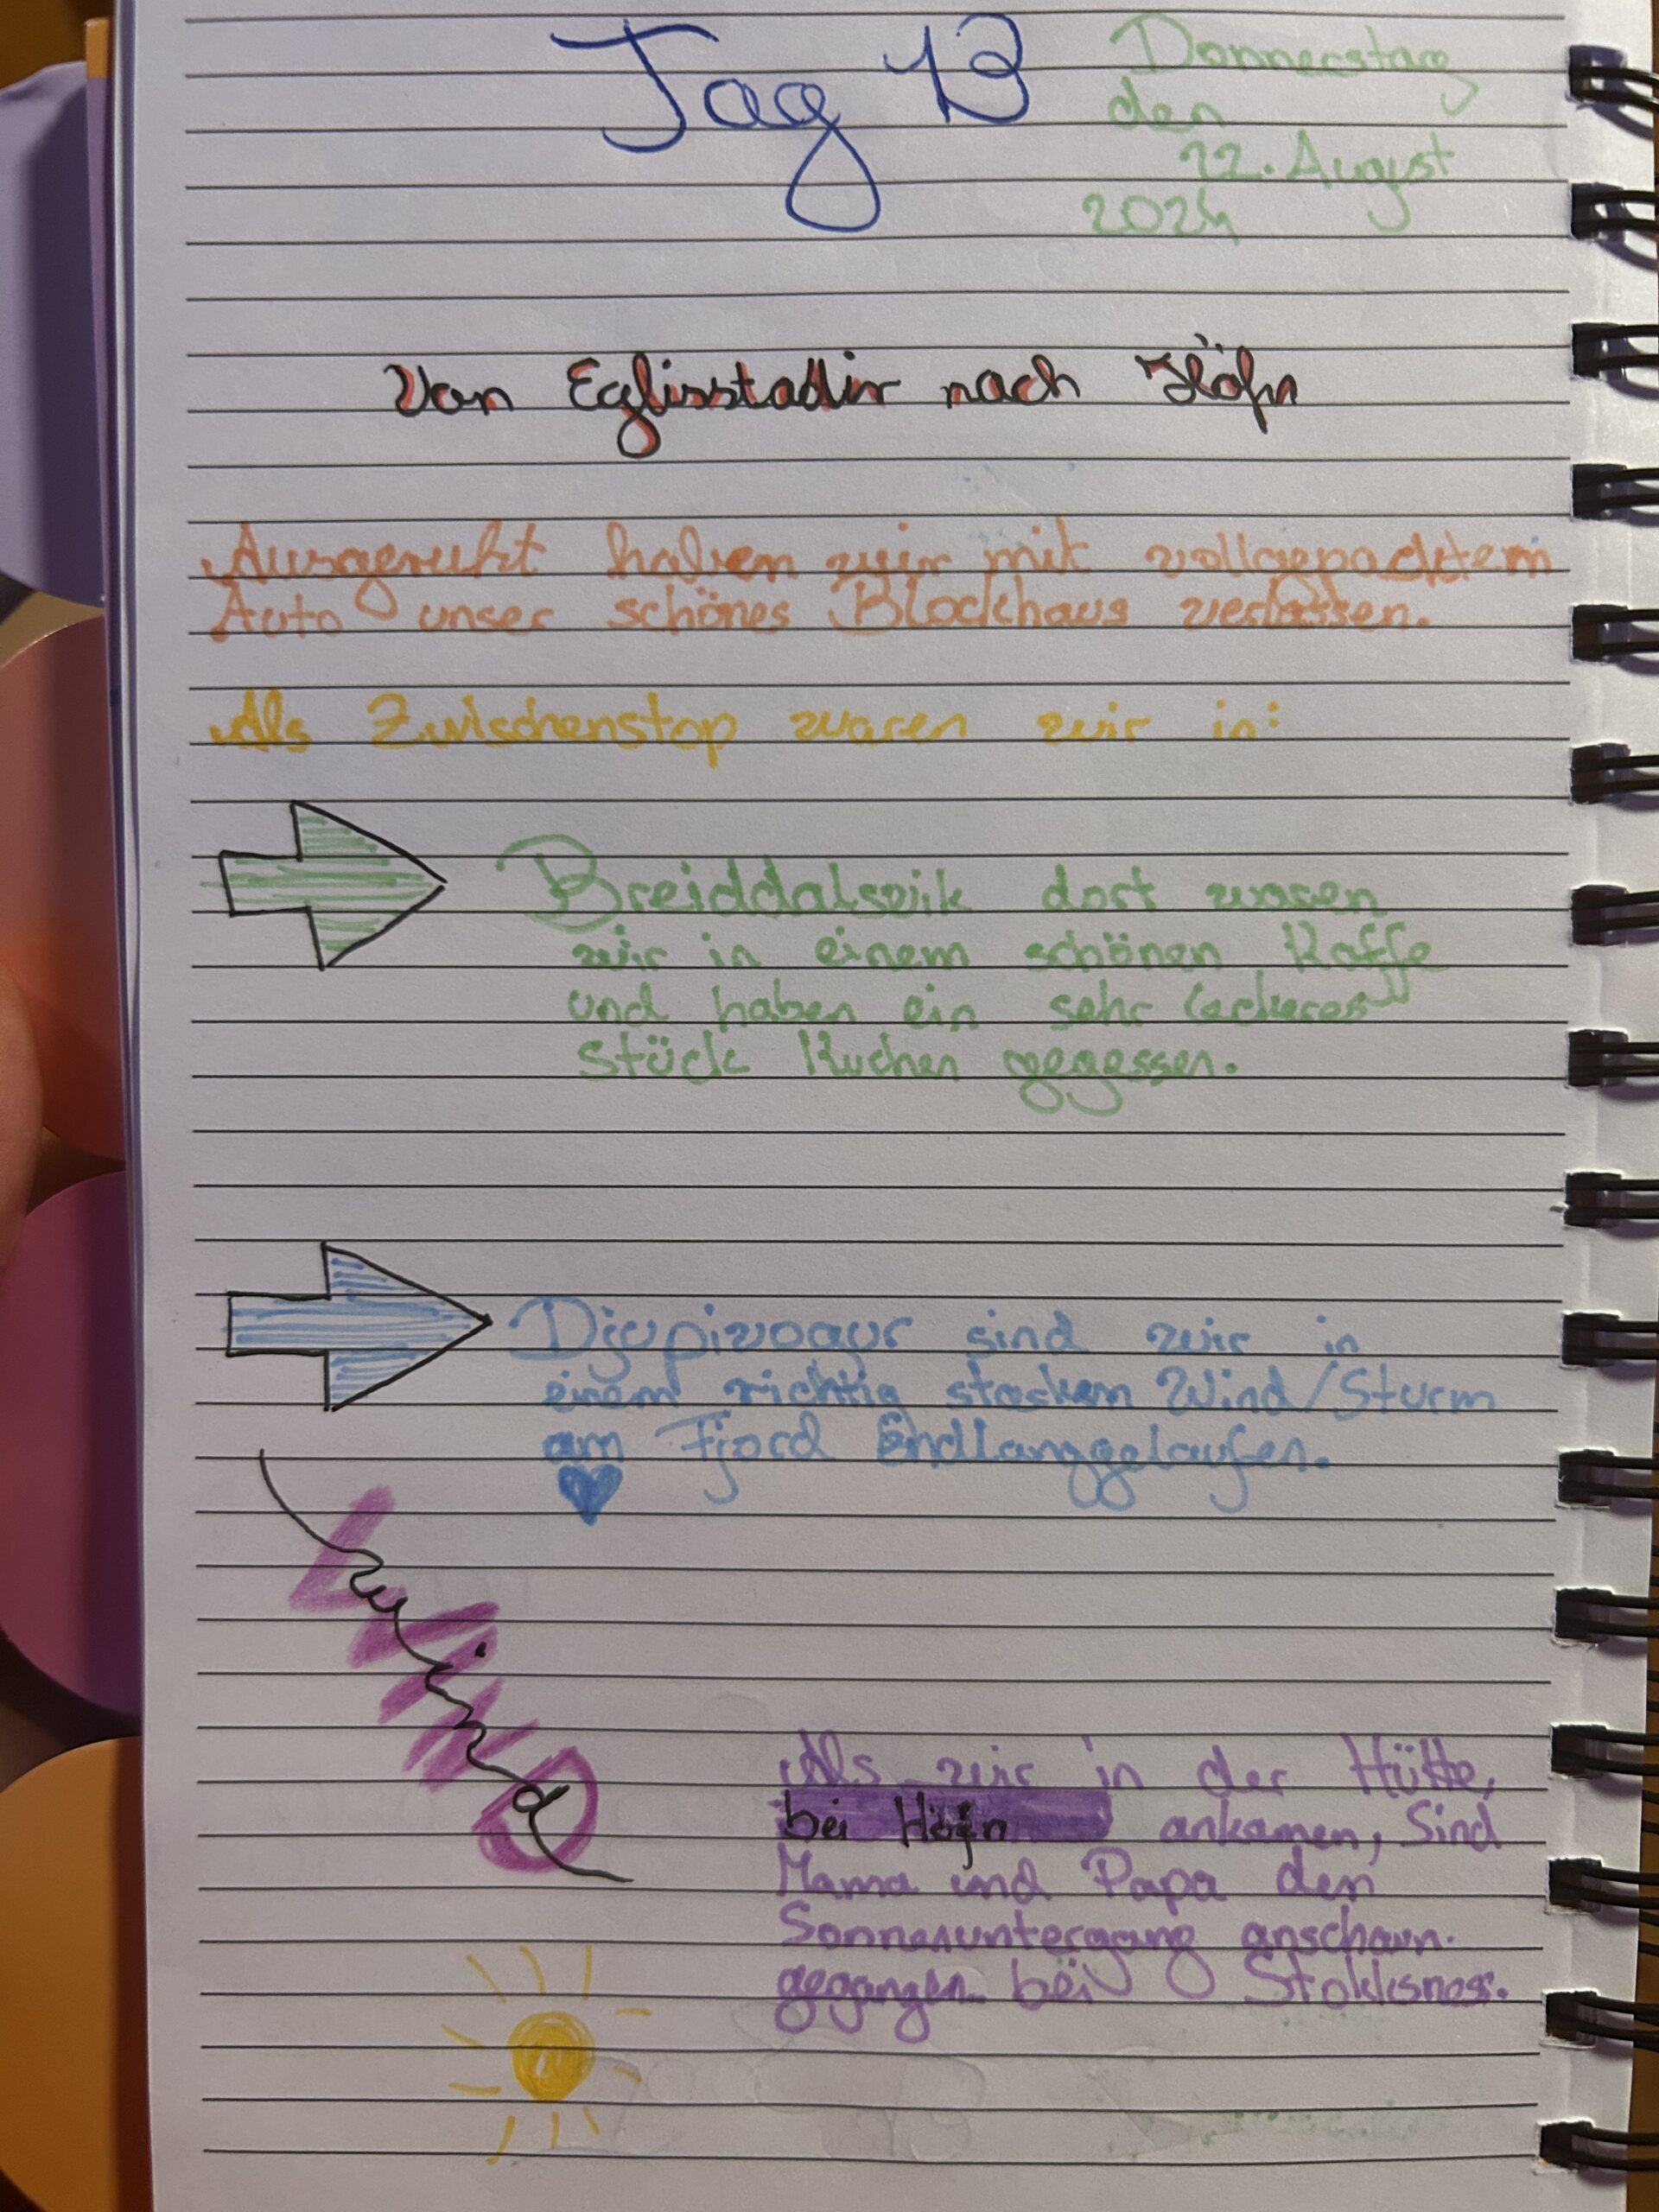 Tag 13
Donnerstag
den
22. August
2024
Von Eglisstadir nach Höfn
Ausgeruht haben wir mit vollgepacktem
Auto unser schönes Blockhaus verlassen.
Als Zwischenstop waren wir in:
Breiddalsvik dort waren
wir in einem schönen Kaffe
und haben ein sehr leckeres
Stück Kuchen gegessen.
Djupivogur sind wir in
einem richtig starken Wind/Sturm
am Fjord Endlanggelaufen.
Wind
Als wir in der Hütte,
bei Höfn ankamen, Sind
Mama und Papa den
Sonnenuntergang anschaun.
gegangen bei Stokksnes.